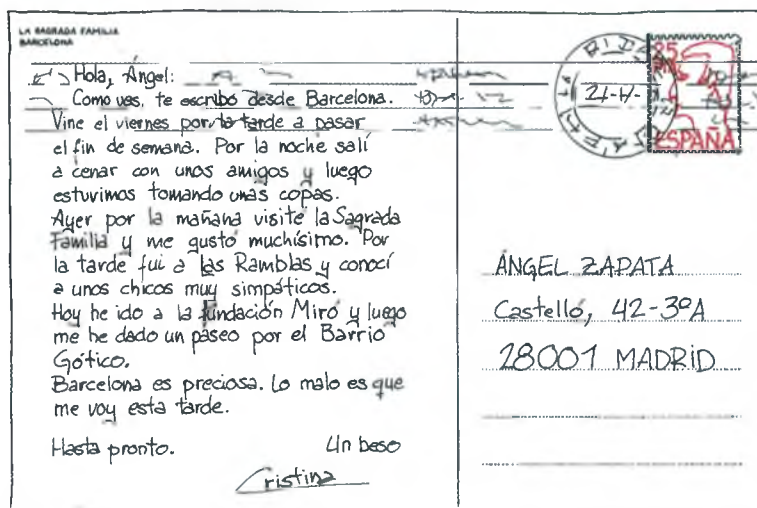 LA SAGRADA FAMILIA
BARCELONA
Hola, Ángel:
Como ves, te escribo desde Barcelona.
Vine el viernes por la tarde a pasar
el fin de semana. Por la noche salí
a cenar con unos amigos y luego
estuvimos tomando unas copas.
Ayer por la mañana visité la Sagrada
Familia y me gustó muchísimo. Por
la tarde fui a las Ramblas y conocí
a unos chicos muy simpáticos.
Hoy he ido a la fundación Miró y luego
me he dado un paseo por el Barrio
Gótico.
Barcelona es preciosa. Lo malo es que
me voy esta tarde.
Hasta pronto. Un beso
Cristina
ESPAÑA
ÁNGEL ZAPATA
Castelló, 42-3ºA
28001 MADRID